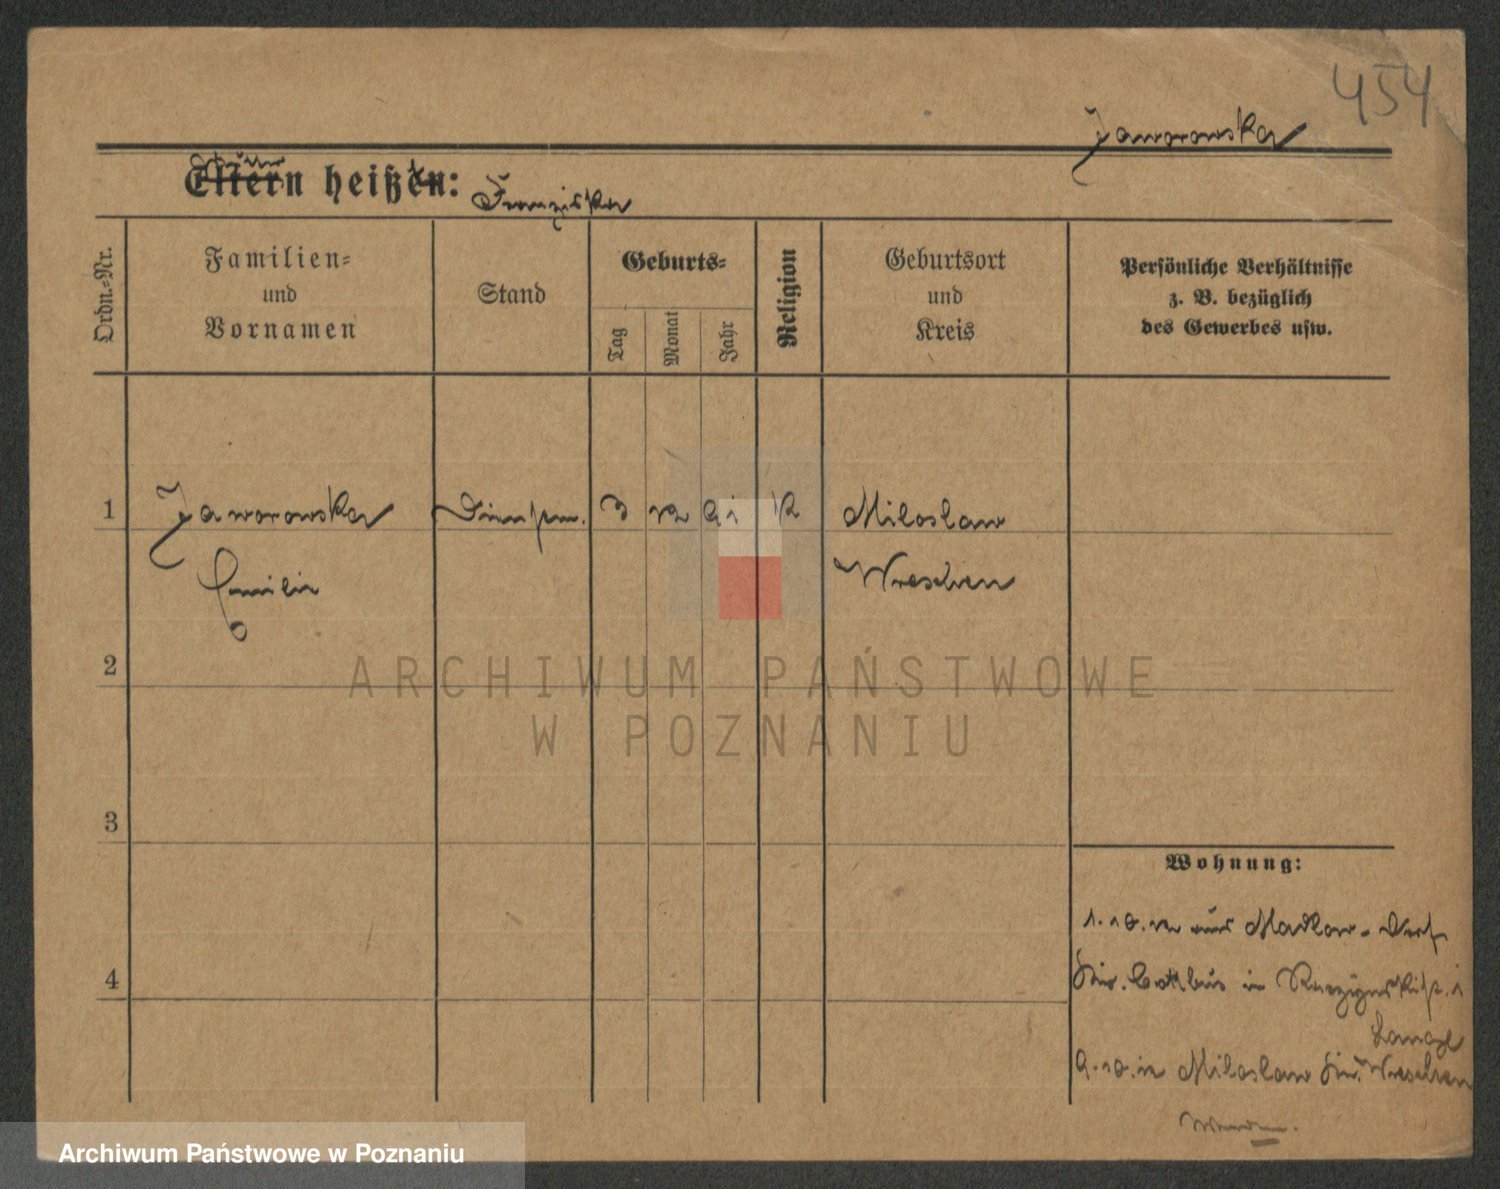 454
Jaworowska
Eltern heißen: Franziska
Ordn.-Nr.
Familien-
und
Vornamen
Stand
Geburts-
Tag
Monat
Jahr
Religion
Geburtsort
und
Kreis
Persönliche Verhältnisse
z. B. bezüglich
des Gewerbes usw.
1
Jaworowska
3 12 91 K
Miloslaw
Emilie
Wreschen
2
ARCHIWUM PAŃSTWOWE
W POZNANIU
3
Wohnung:
1. 10. 12 aus Madlow-
4
Kr. Cottbus in
9. 10. in Miloslaw Kr. Wreschen
Archiwum Państwowe w Poznaniu